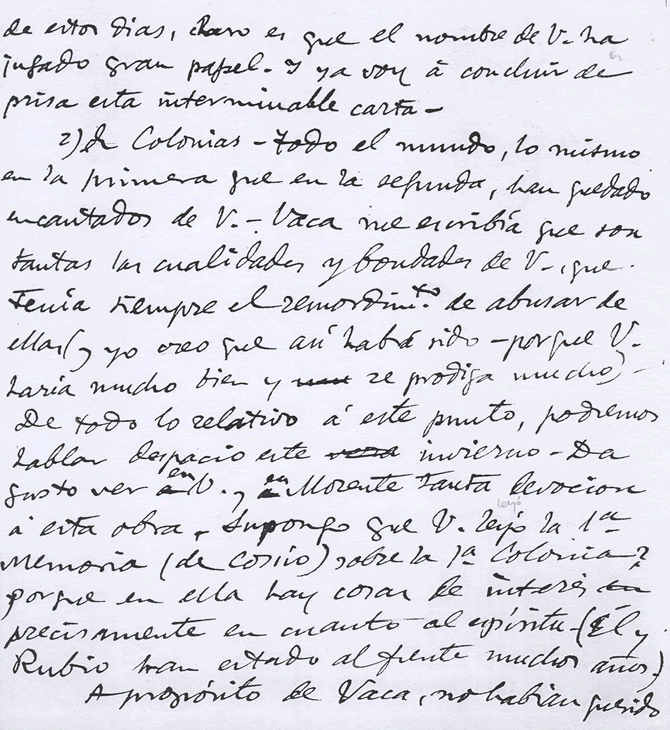 de estos dias, claro es que el nombre de V. ha
jugado gran papel. Y ya voy á concluir de
prisa esta interminable carta –
2) de Colonias – todo el mundo, lo mismo
en la primera que en la segunda, han quedado
encantados de V. – Vaca me escribía que son
tantas las cualidades y bondades de V., que
tenía siempre el remordimto. de abusar de
ellas (y yo creo que así habrá sido – porque V.
haría mucho bien y se prodiga mucho) –
De todo lo relativo á este punto, podremos
hablar despacio este invierno – Da
gusto ver en V. y en Morente tanta devocion
á esta obra. Supongo que V. leyó la 1ª
leyó
Memoria (de Cossío) sobre la 1ª Colonia?
porque en ella hay cosas de interés
precisamente en cuanto al espíritu – (Él y
Rubio han estado al frente muchos años)
A propósito de Vaca, no habían querido